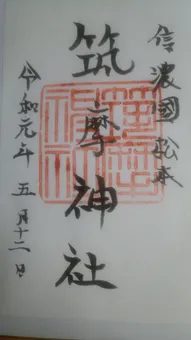 信濃國 松本
筑摩神社
令和元年 五月十二日